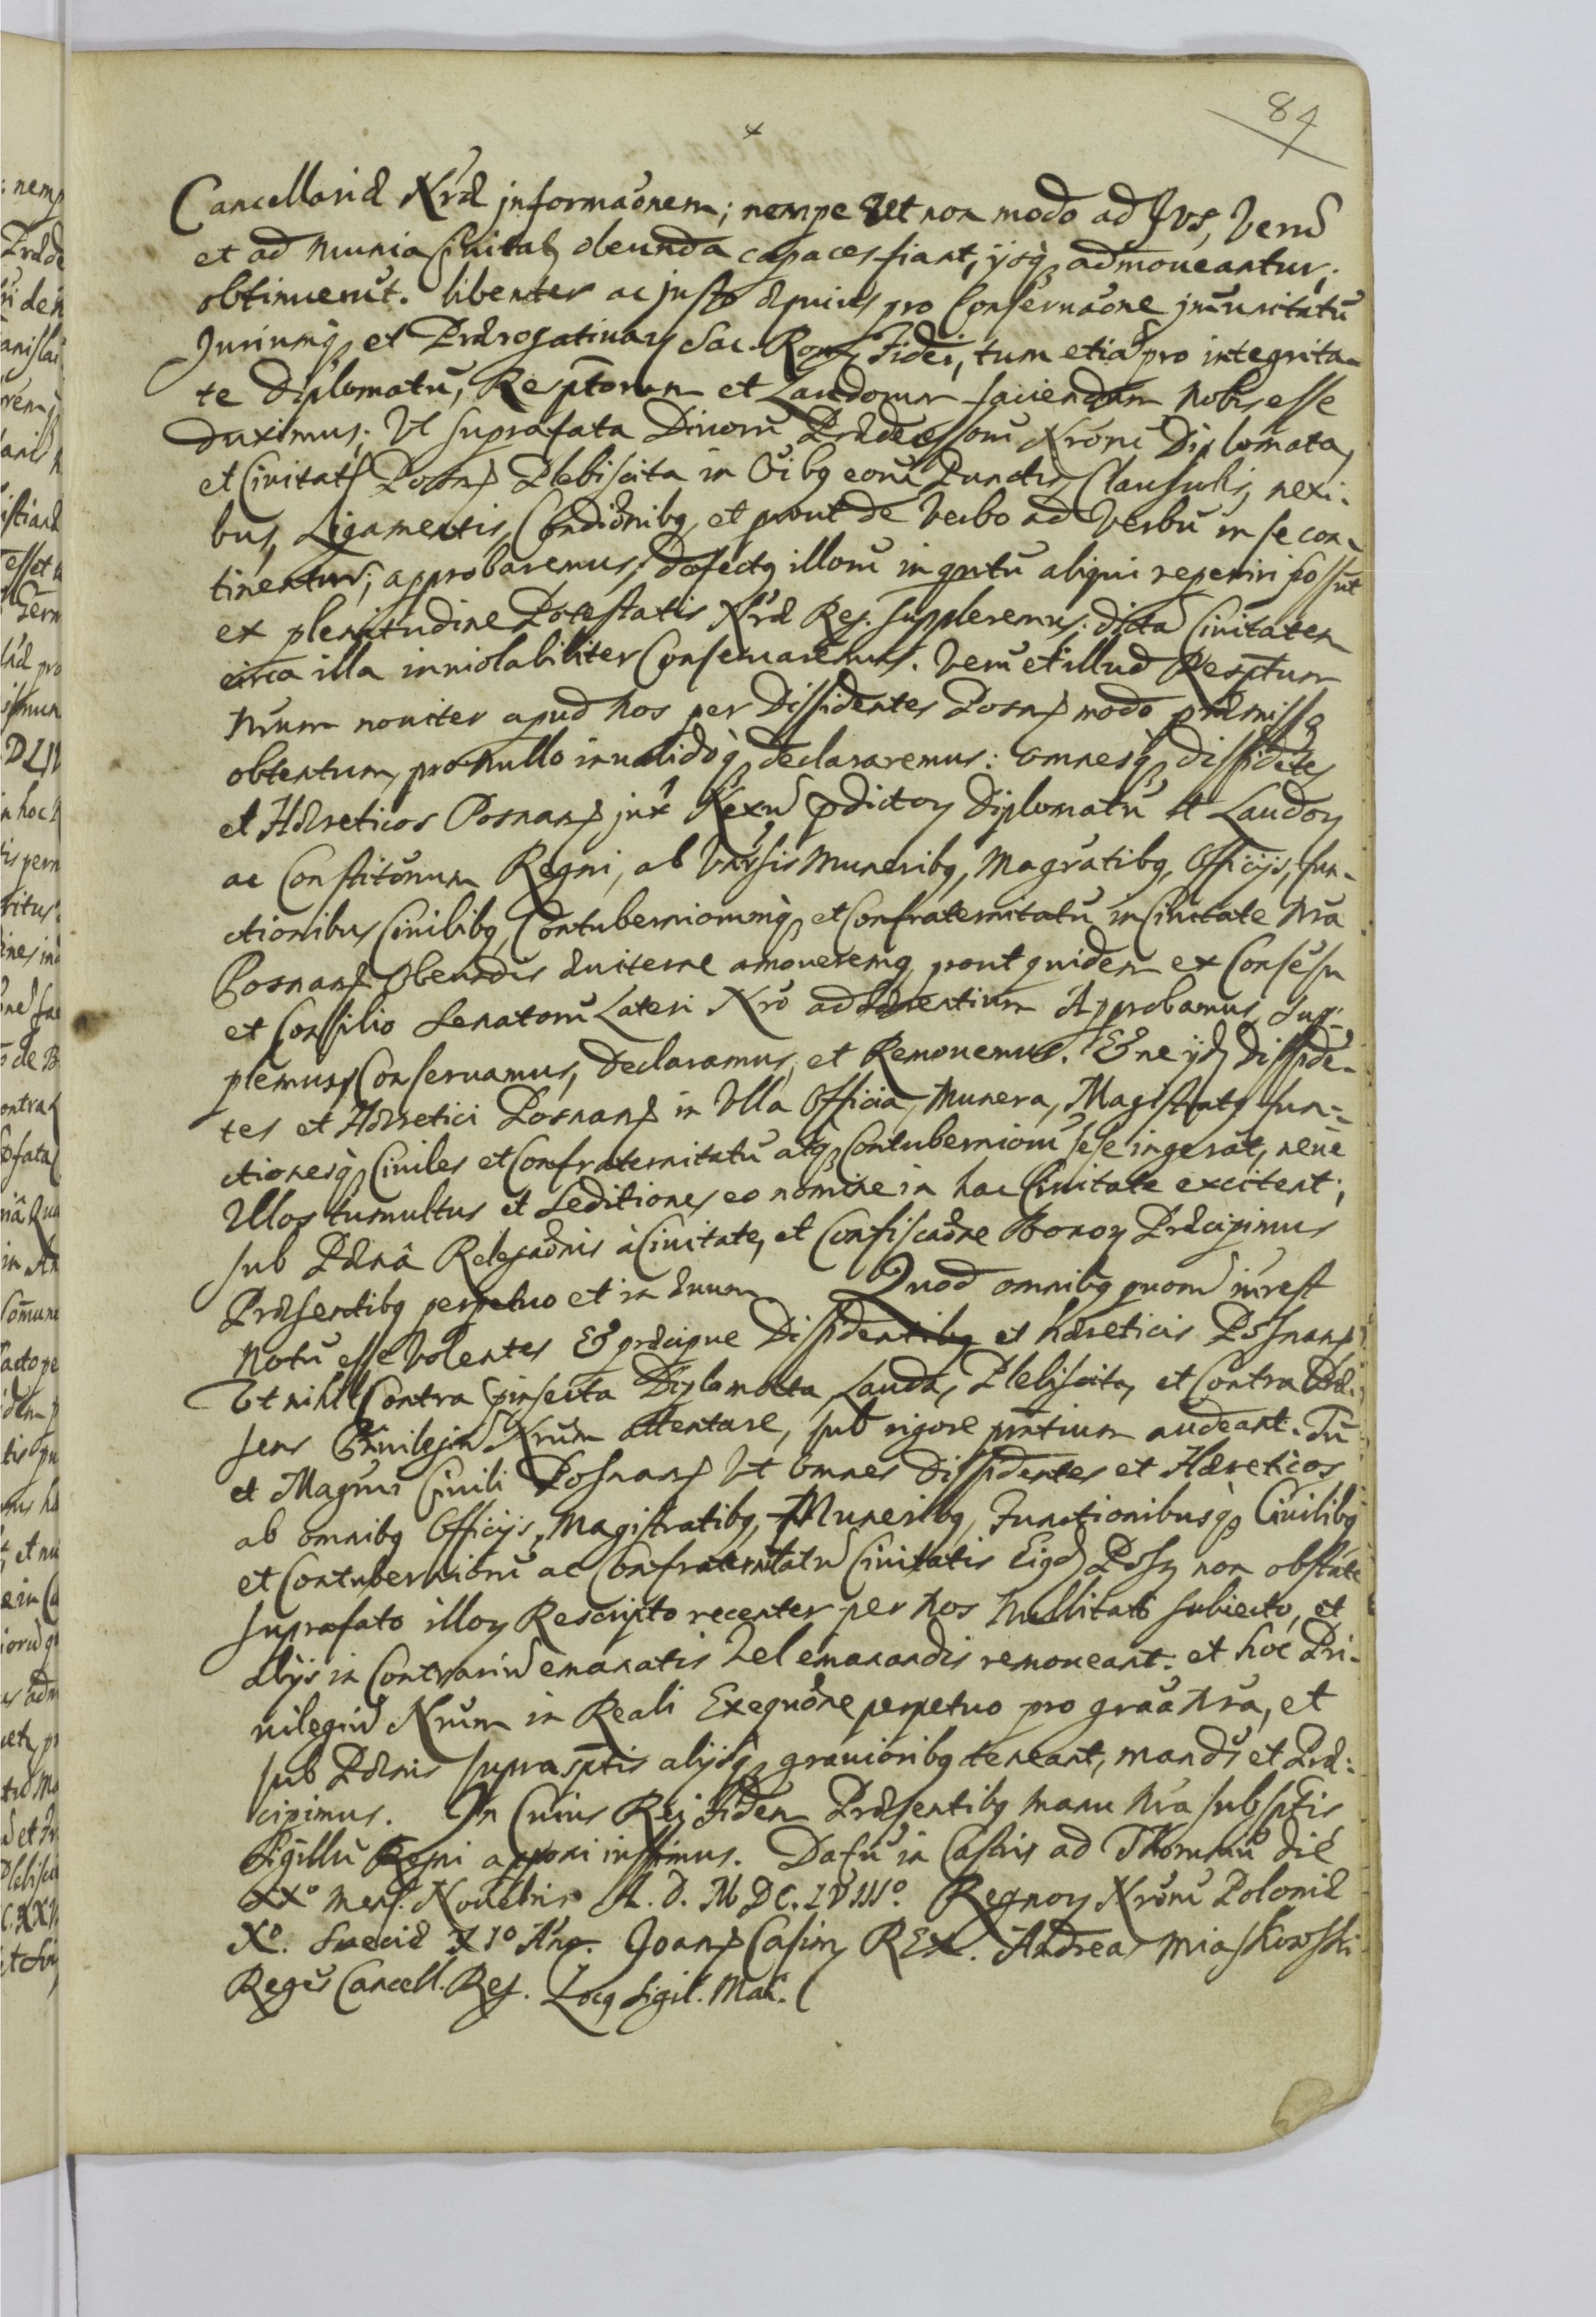 84
Cancellariæ Nræ informaõnem; nempe Ut non modo ad Jus, Verũ
et ad munia Ciuitatꝭ obeunda capaces fiant, ijsq; admoueantur;
obtinuerũt. libenter ac justo æquius pro Conseruaõne jmunitatũ
Juriumq; et Prærogatiuarꝝ Sac. Romꝭ Fidei, tum etiã pro integrita-
te diplomatũ, Resptorum et Laudorum faciendum Nobis esse
duximus; Ut suprafata Diuorũ Prædecessorũ Nrorũ Diplomata,
et Ciuitatꝭ Posnꝭ Plebiscita in Oĩbꝰ eorũ Punctis, Clausulis, nexi-
bus, Ligamentis, Condiõnibꝰ, et prout de Verbo ad Verbũ in se con-
tinentur; approbaremus; defectꝰ illorũ inqntũ aliqui reperiri possũt
ex plenitudine Potestatis Nræ Reg. suppleremus: dictã Ciuitatem
circa illa inuiolabiliter Conseruaremus. Verũ et illud Resptum
Nrum nouiter apud Nos per Dissidentes Posnꝭ modo præmisso
obtentum, pro nullo inualidoq; declararemus: omnesq; dissidẽtes
et Hæreticos Posnanꝭ juxˣ Nexũ pdictorꝝ Diplomatũ et Laudorꝝ
ac Constitõnum Regni, ab Vnrsis Muneribꝰ, Magratibꝰ, Officijs, fun-
ctionibus Ciuilibꝰ, Contuberniorumq; et Confraternitatũ in Ciuitate Nra
Posnanꝭ Obeundis æuiterne amoueremꝰ, prout quidem ex Consẽsu
et Consilio Senatorũ Lateri Nro adhærentium Approbamus, Sup-
plemus, Conseruamus, Declaramus, et Remouemus. Et ne ijdꝭ dissidẽ-
tes et Hæretici Posnanꝭ in Vlla Officia, Munera, Magistratꝰ fun-
ctionesq; Ciuiles et Confraternitatũ atq; Contuberniorũ sese ingerãt, neue
Vllos tumultus et Seditiones eo nomine in hac Ciuitate excitent;
sub Pænâ Relegaõnis à Ciuitate, et Confiscaõne Bonorꝝ Præcipimus
Præsentibꝰ perpetuo et in æuum Quod omnibꝰ quorũ inrest
Notũ esse Volentes & præcipue Dissidentibꝰ et hæreticis Posnanꝭ
Ut nihil Contra pinserta Diplomata, Lauda, Plebiscita, et Contra Præ-
sens Priuilegiũ Nrum attentare, sub rigore pntium audeant. Tũ
et Magrui Ciuili Posnanꝭ Vt omnes dissidentes et Hæreticos
ab omnibꝰ Officijs, Magistratibꝰ, Muneribꝰ, Functionibusq; Ciuilibꝰ
et Contuberniorũ ac Confraternitatũ Ciuitatis Eigdꝭ Posnꝭ non obstãte
suprafato illorꝝ Rescripto recenter per Nos Nullitati subiecto, et
alijs in Contrariũ emanatis Vel emanandis remoueant. et hoc Pri-
uilegiũ Nrum in Reali Exequõne perpetuo pro graã Nra, et
sub Pænis suprasptis alijsq; grauioribꝰ teneant, mandũs et Præ-
cipimus. In Cuius Rei fidem Præsentibꝰ manu Nra subsptis
Sigillũ Regni apponi iussimus. Datũ in Castris ad Thoruniũ die
XXº mens. Nouebris A. D. M DC. LVIIIº. Regnorꝝ Nrorũ Poloniæ
Xº. Sueciæ XIº Anº. Joanꝭ Casimꝭ REX. Andreas Miaskowski
Regẽs Cancell. Reg. Locꝰ Sigil. Mai.